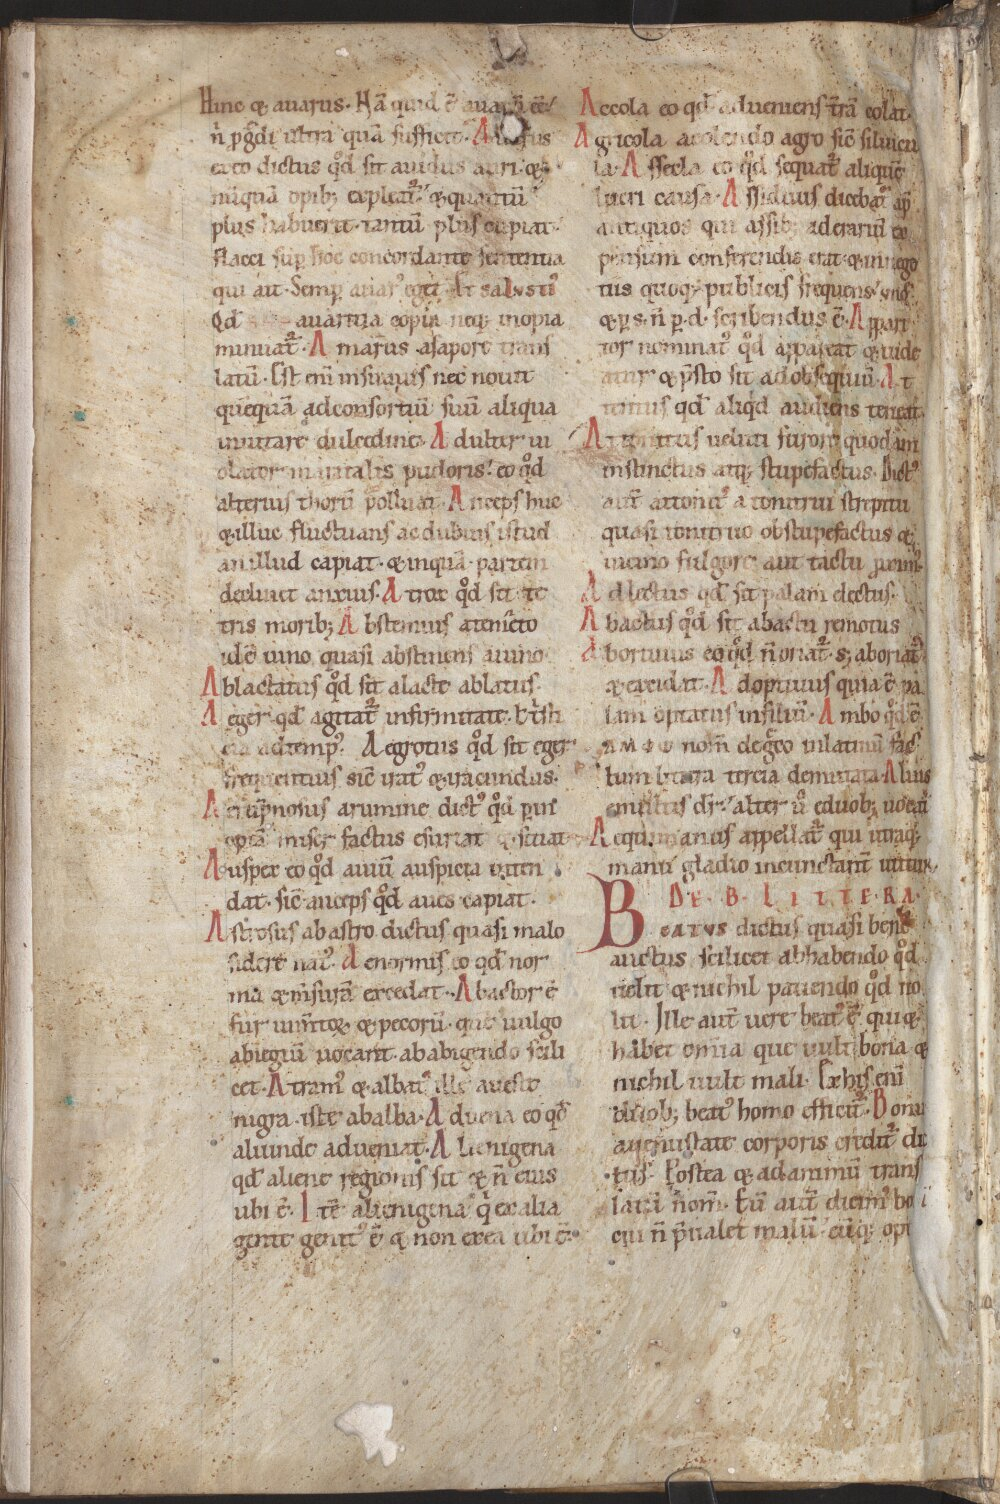 Hinc & auarus. Hā quid ē auarū eē.
n̄ p̄gdi ultra quā sufficit. A
ex eo dictus qd̄ sit auidus auri. &
nūquā opib; expleat̄. & quantū
plus habuerit. tantū plus cupiat.
flacci sup̄ hoc concordante sententia
qui ait. Semp̄ auar᾽ eget. Et salusti᾽
Qd̄ auaritia copia neq; inopia
minuat̄. A marus asapore trans
latū. Est enī insuauis nec nouit
quēquā adconsortiū suū aliqua
inuitare dulcedine. A dulter ui
olator maritalis pudoris. eo qd̄
alterius thorū polluat. A nceps huc
& illuc fluctuans ac dubius istud
an illud capiat. & inquā partem
declinet anxius. A trox qd̄ sit te
tris morib; A bstemius atemeto
idē uino quasi abstinens auino
A blactatus qd̄ sit alacte ablatus.
A eger. qd̄ agitat̄ infirmitate. ł tsti
cia adtemp᾽. A egrotus qd̄ sit eger
frequentius sic̄ irat᾽ & iracundus.
A erūpnosus arumine dict᾽ qd̄ p̄ in
opiā miser factus esuriat & sitiat
A uspex eo qd̄ auiū auspicia inten
dat. sic̄ auceps qd̄ aues capiat.
A strosus ab astro dictus quasi malo
sidere nat᾽. A enormis eo qd̄ nor
mā & mēsurā excedat. A bactor ē
fur iumtoꝝ & pecorū. que uulgo
abiegiū uocant. ab abigendo scili
cet. A tram᾽ & albat᾽ ille aueste
nigra. iste abalba. A duena eo qd̄
aliunde adueniat. A lienigena
qd̄ aliene regionis sit & n̄ eius
ubi ē. I tē alienigena q̄ ex alia
gente genit᾽ ē & non exea ubi ē.
A ccola eo qd̄ adueniens t̄rā colat.
A gricola acolendo agro sic̄ siluicu
la. A ssecla eo qd̄ sequat̄ aliquē
lucri causa. A ssiduus dicebat̄ ap̄
antiquos qui assib; ad erariū ex
pensum conferendis erat. & innego
tiis quoq; publicis frequens. unde
& p̄ s. n̄ p̄. d. scribendus ē. A ppari
tor nominat᾽ qd̄ appareat & uide
atur & p̄sto sit ad obsequiū. A t
tentus qd̄ aliqd̄ audiens teneat.
A ttonitus ueluti furore quodam
instinctus atq; stupefactus. Dict᾽
aut̄ attonit᾽ a tonitrui strepitu
quasi tonitruo obstupefactus &
uicino fulgore aut tactu proxim᾽.
A dlectus qd̄ sit palam electus.
A bactus qd̄ sit abactu remotus
A bortiuus eo qd̄ n̄ oriat̄. s; aboriat̄
& excidat. A doptiuus quia ē pa
lam optatus infiliū. A mbo qd̄ ē
nom̄ degreco inlatinū fac
tum littera tercia demutata. A lius
emultis dr̄. alter ū eduob; uocat̄
A equimanus appellat̄ qui utraq;
manu gladio incunctant̄ utitur.
DE. B. LITTERA.
BEATVS dictus quasi bene
auctus scilicet abhabendo qd̄
uelit & nichil patiendo qd̄ no
lit. Ille aut̄ uere beat᾽ ē qui &
habet omīa que uult bona &
nichil uult mali. Ex his enī
duob; beat᾽ homo efficit̄. Bonu
auenustate corporis credit̄ dic
tus. Postea & adanimū trans
latū nom̄. Eū aut̄ dicim᾽ bo
cui n̄ p̄ualet malū. eūq; opt